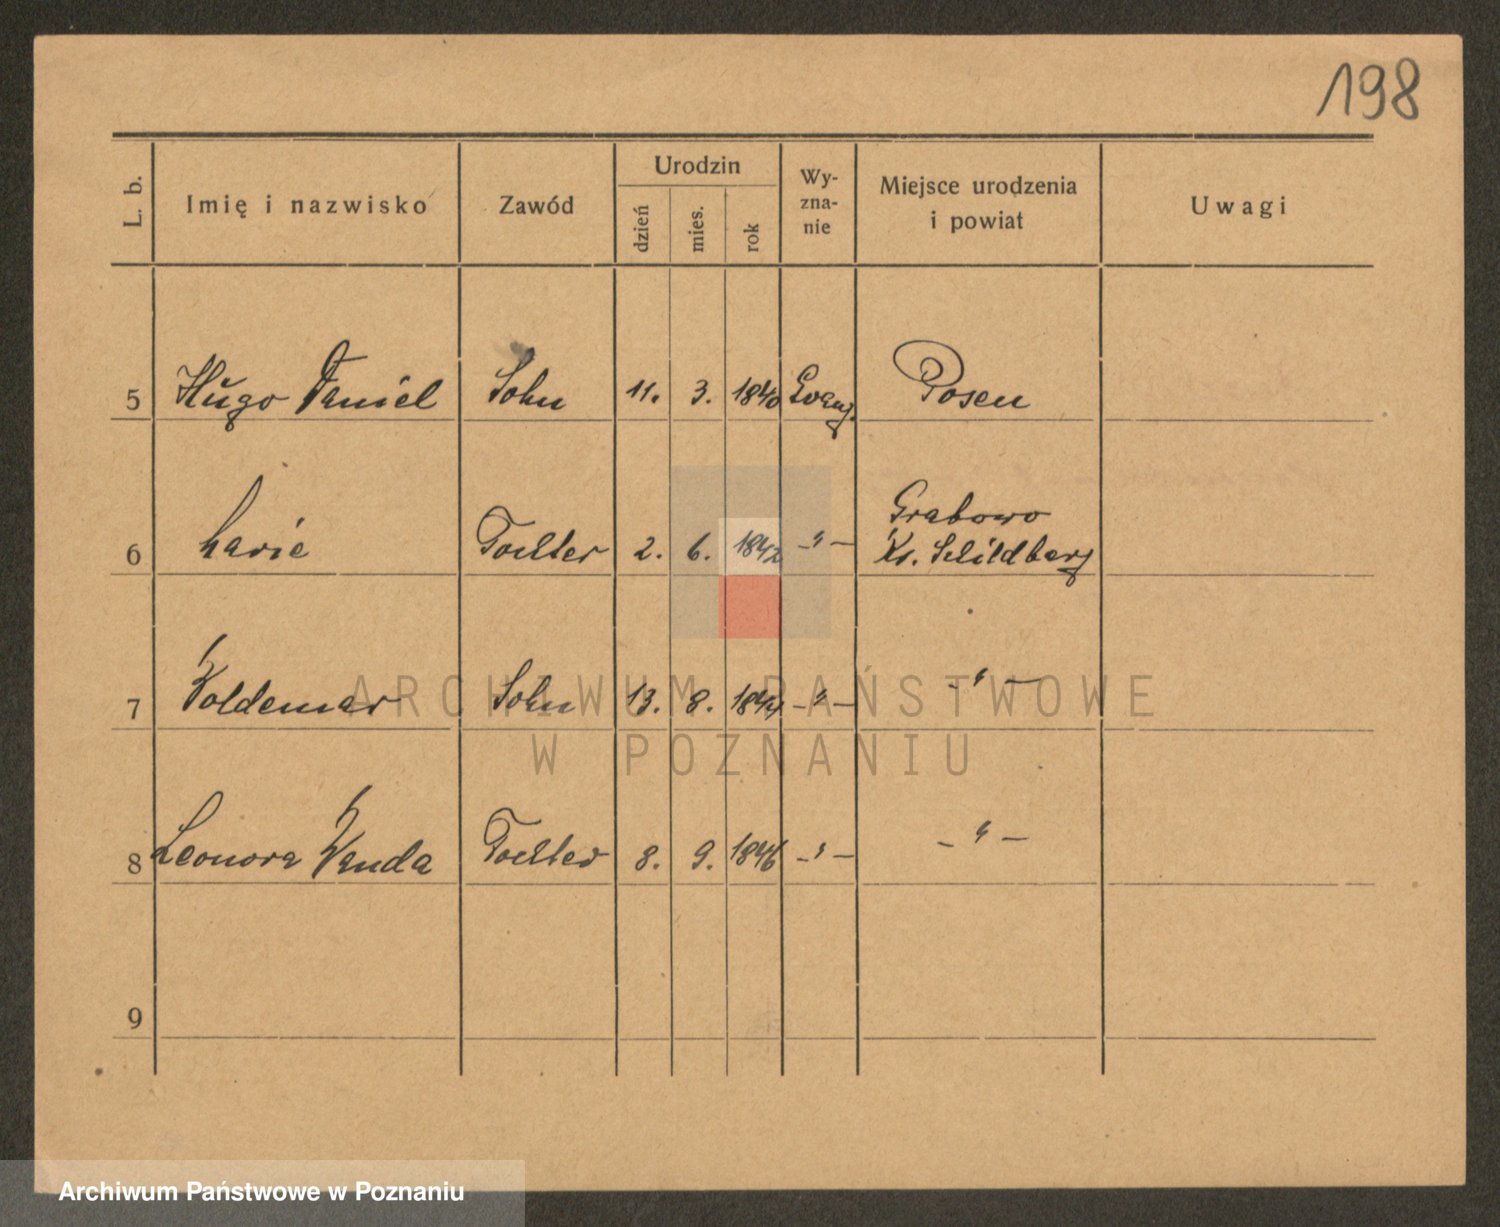 198
L. b.
Imię i nazwisko
Zawód
Urodzin
dzień
mies.
rok
Wy-
zna-
nie
Miejsce urodzenia
i powiat
Uwagi
5 Hugo Daniel Sohn 11. 3. 1840 Evang. Posen
Grabowo
6 Marie Tochter 2. 6. 1842 -"- Kr. Schildberg
7 Woldemar Sohn 13. 8. 1844 -"- -"-
8 Leonora Wanda Tochter 8. 9. 1846 -"- -"-
9
ARCHIWUM PAŃSTWOWE
W POZNANIU
Archiwum Państwowe w Poznaniu